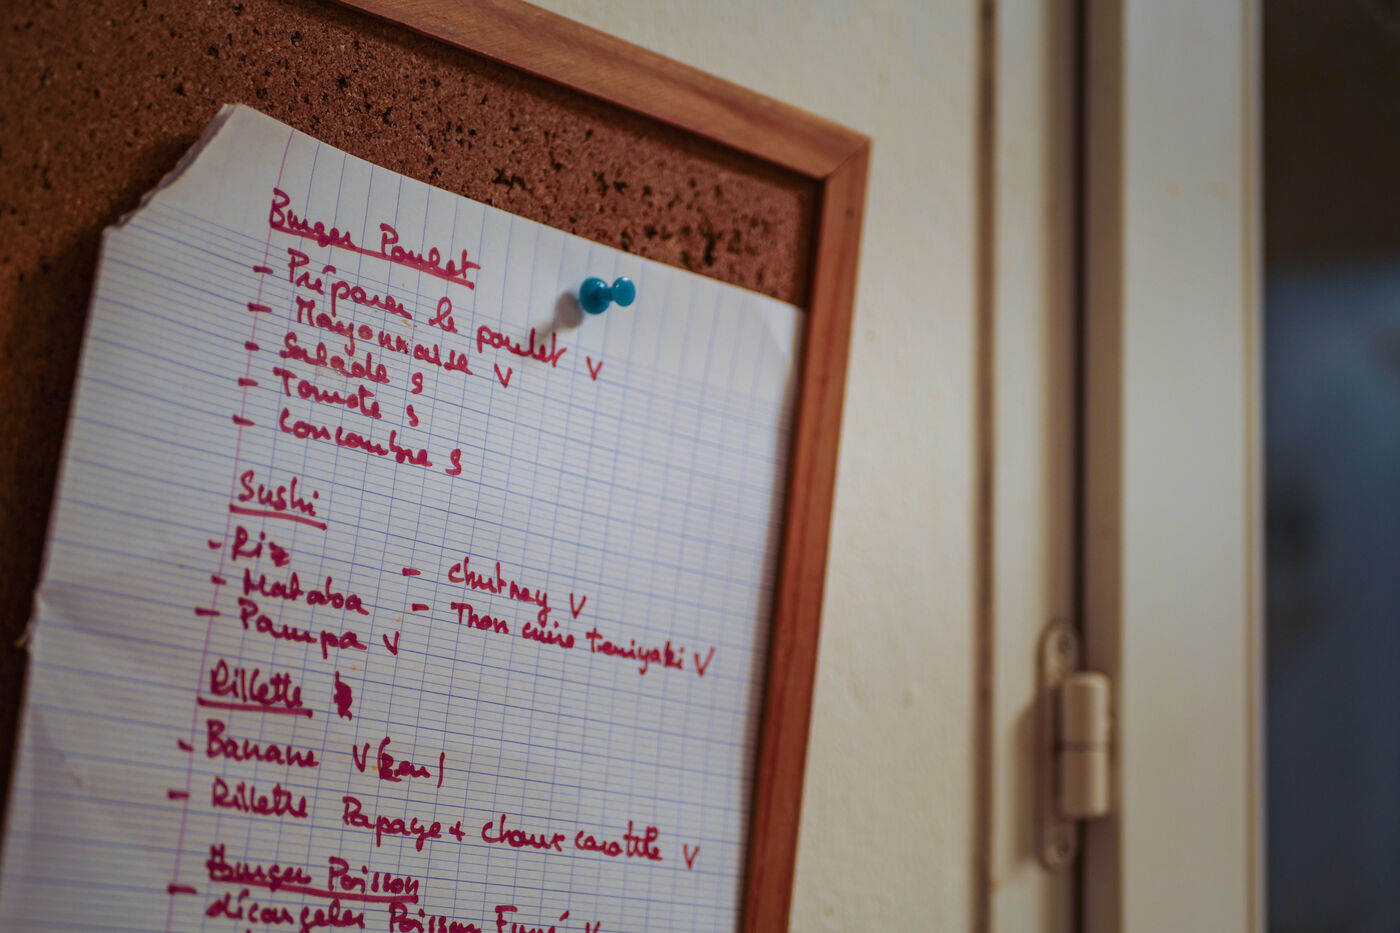 Burger Poulet
- Préparer le poulet V
- Mayonnaise V
- Salade S
- Tomate S
- Concombre S
Sushi
- Riz
- Mataba
- Pampa V
- chutney V
- Thon cuire teriyaki V
Rillette
- Banane V
- Rillette Papaye + choux carotte V
Burger Poisson
- décongeler Poisson Fumé V